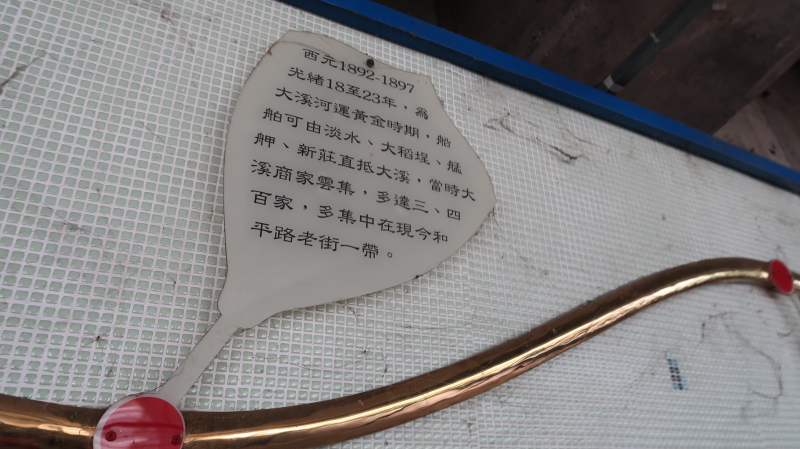 西元1892-1897
光緒18至23年，為
大溪河運黃金時期，船
舶可由淡水、大稻埕、艋
舺、新莊直抵大溪，當時大
溪商家雲集，多達三、四
百家，多集中在現今和
平路老街一帶。